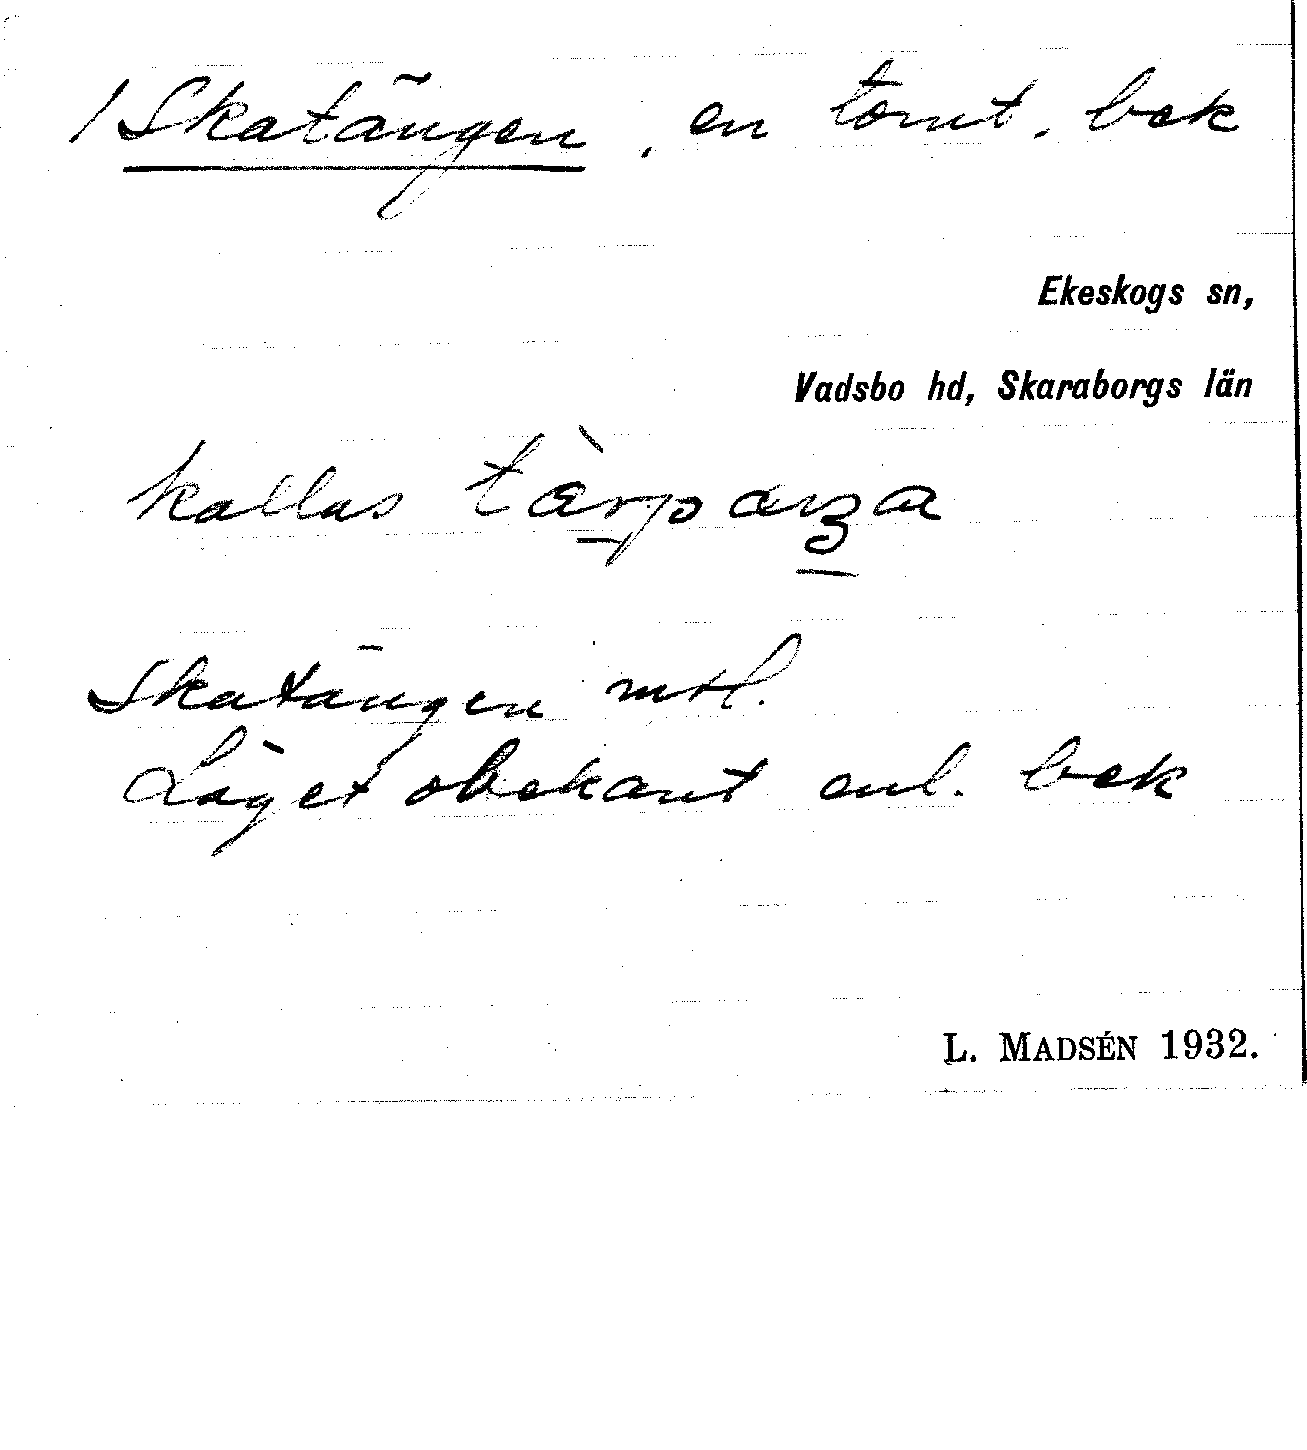 / Skatängen, en tomt. bek
Ekeskogs sn,
Vadsbo hd, Skaraborgs län
kallas
Skatängen mtl.
Läget obekant enl. bek
L. MADSÉN 1932.